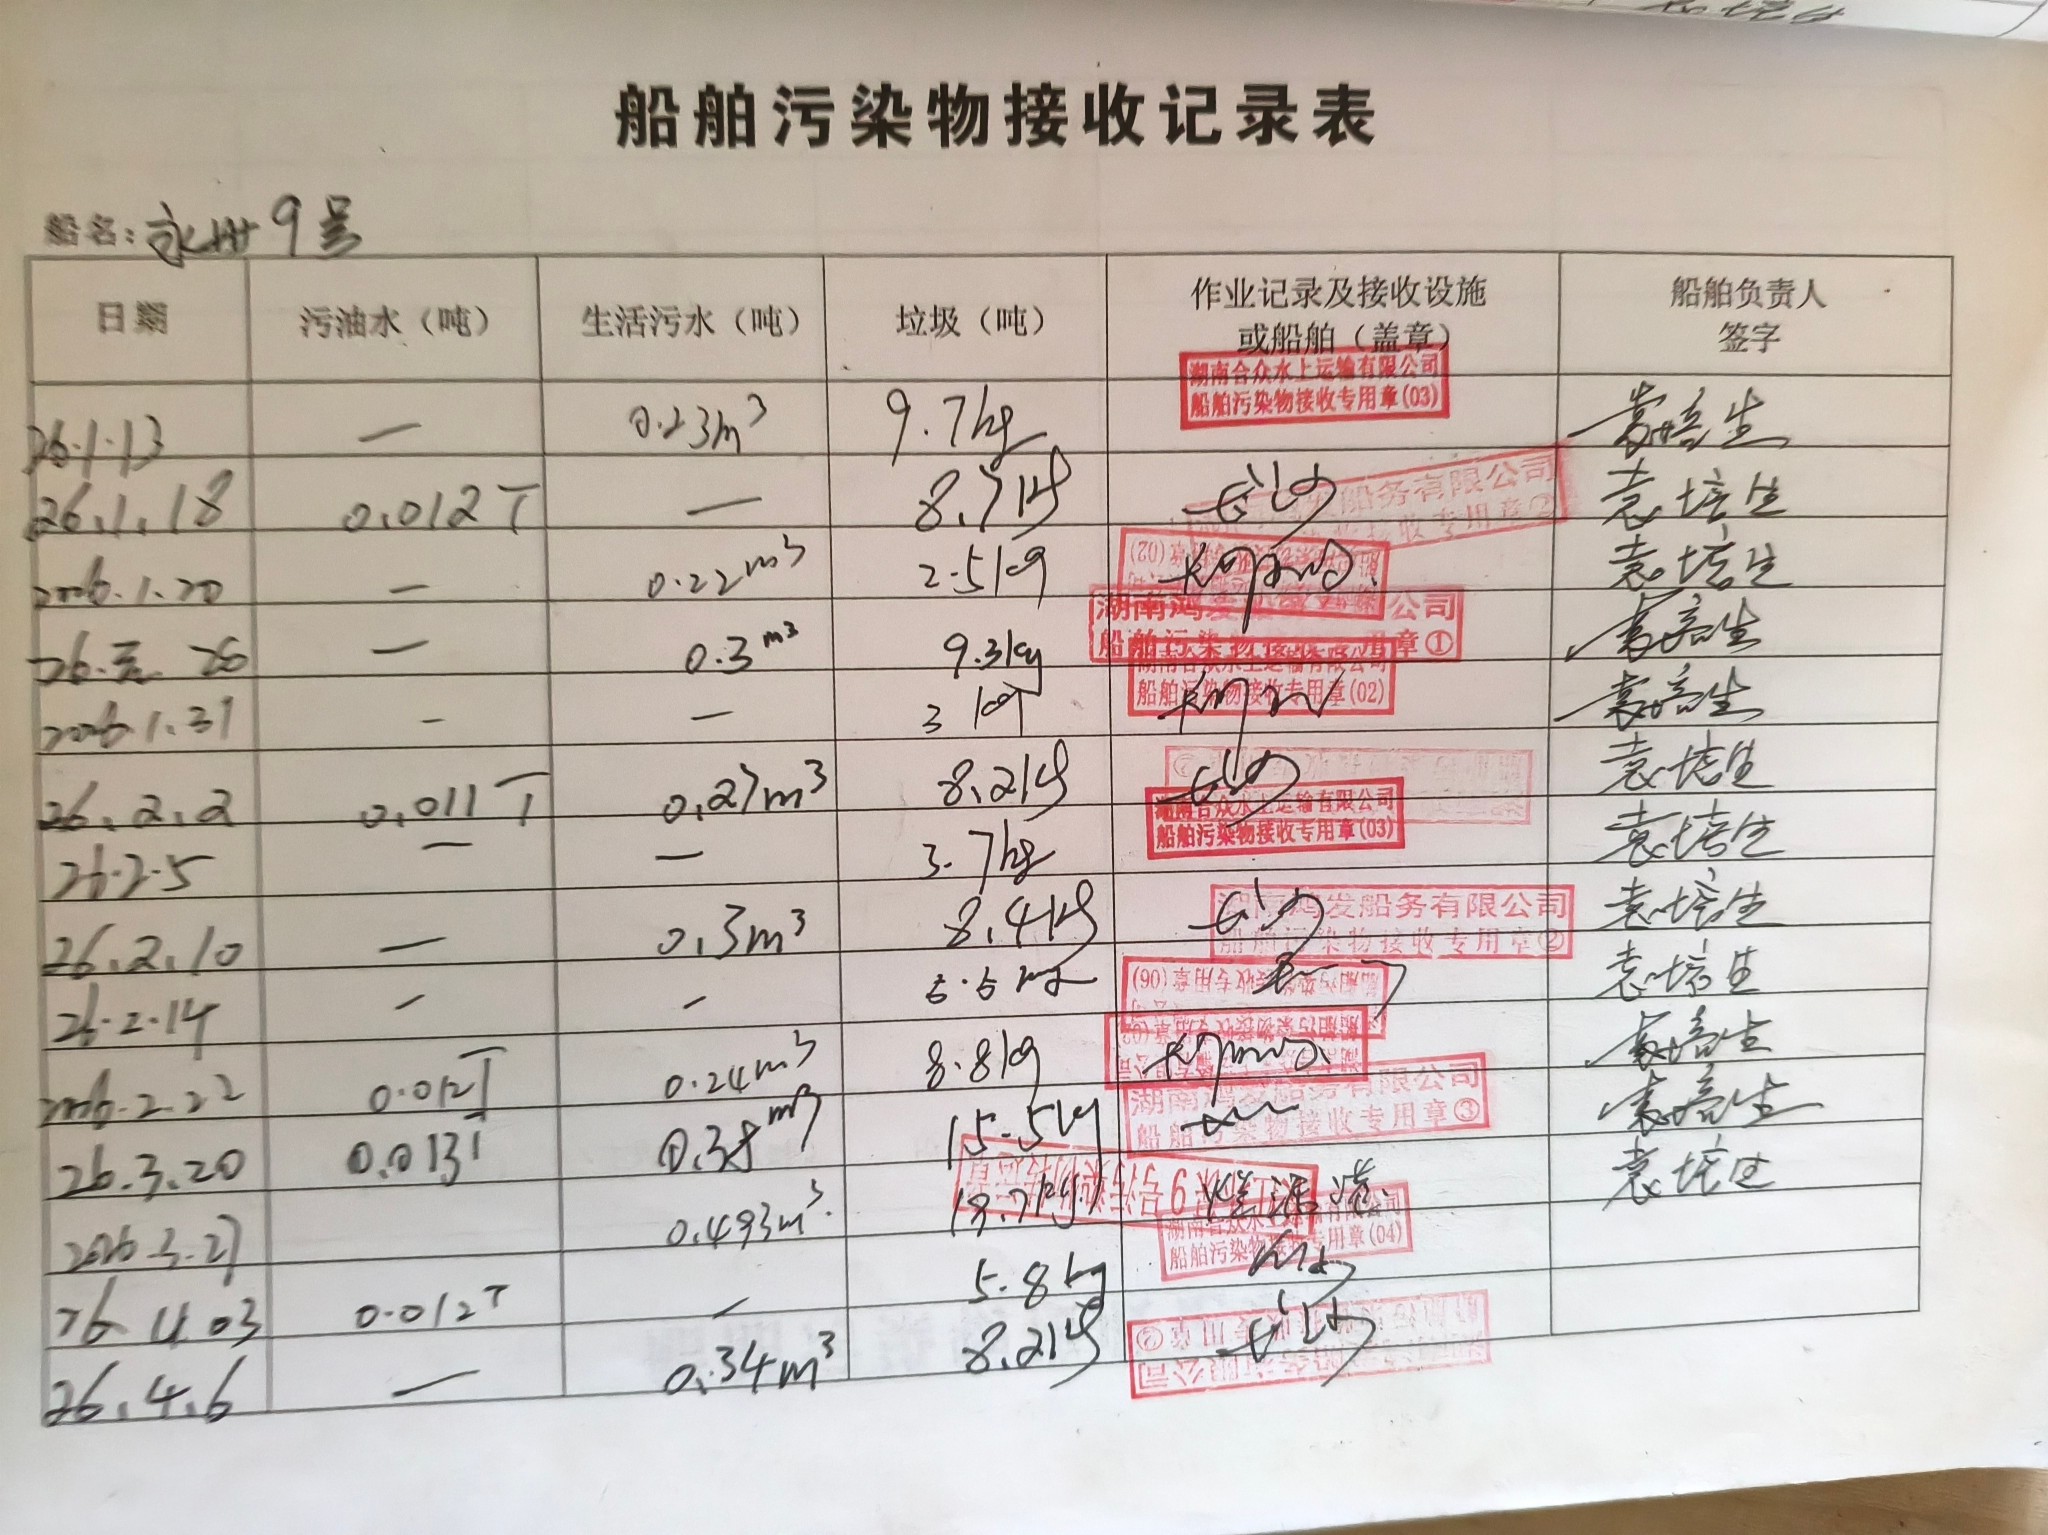 船舶污染物接收记录表
船名: 永州9号
日期 污油水（吨） 生活污水（吨） 垃圾（吨） 作业记录及接收设施或船舶（盖章） 船舶负责人签字
26.1.13 — 0.23m³ 9.7kg 湖南合众水上运输有限公司 船舶污染物接收专用章(03) 袁培生
26.1.18 0.012T — 8.7kg 船务有限公司 接收专用章② 袁培生
2026.1.20 — 0.22m³ 2.5kg (02) 袁培生
26.元.26 — 0.3m³ 9.3kg 湖南鸿发 公司 船舶污染物接收专用章① 袁培生
2026.1.31 - — 3kg 湖南合众水上运输有限公司 船舶污染物接收专用章(02) 袁培生
26.2.2 0.011T 0.27m³ 8.2kg 袁培生
26.2.5 — — 3.7kg 湖南合众水上运输有限公司 船舶污染物接收专用章(03) 袁培生
26.2.10 — 0.3m³ 8.4kg 湖南鸿发船务有限公司 船舶污染物接收专用章② 袁培生
26.2.14 - - 5.5kg 船舶污染物接收专用章(06) 袁培生
2026.2.22 0.012T 0.24m³ 8.8kg 袁培生
26.3.20 0.013T 0.38m³ 15.5kg 湖南鸿发船务有限公司 船舶污染物接收专用章③ 袁培生
2026.3.27 0.493m³ 19.7kg 袁培生
26.4.03 0.012T — 5.8kg 湖南合众水上运输有限公司 船舶污染物接收专用章(04)
26.4.6 — 0.34m³ 8.2kg